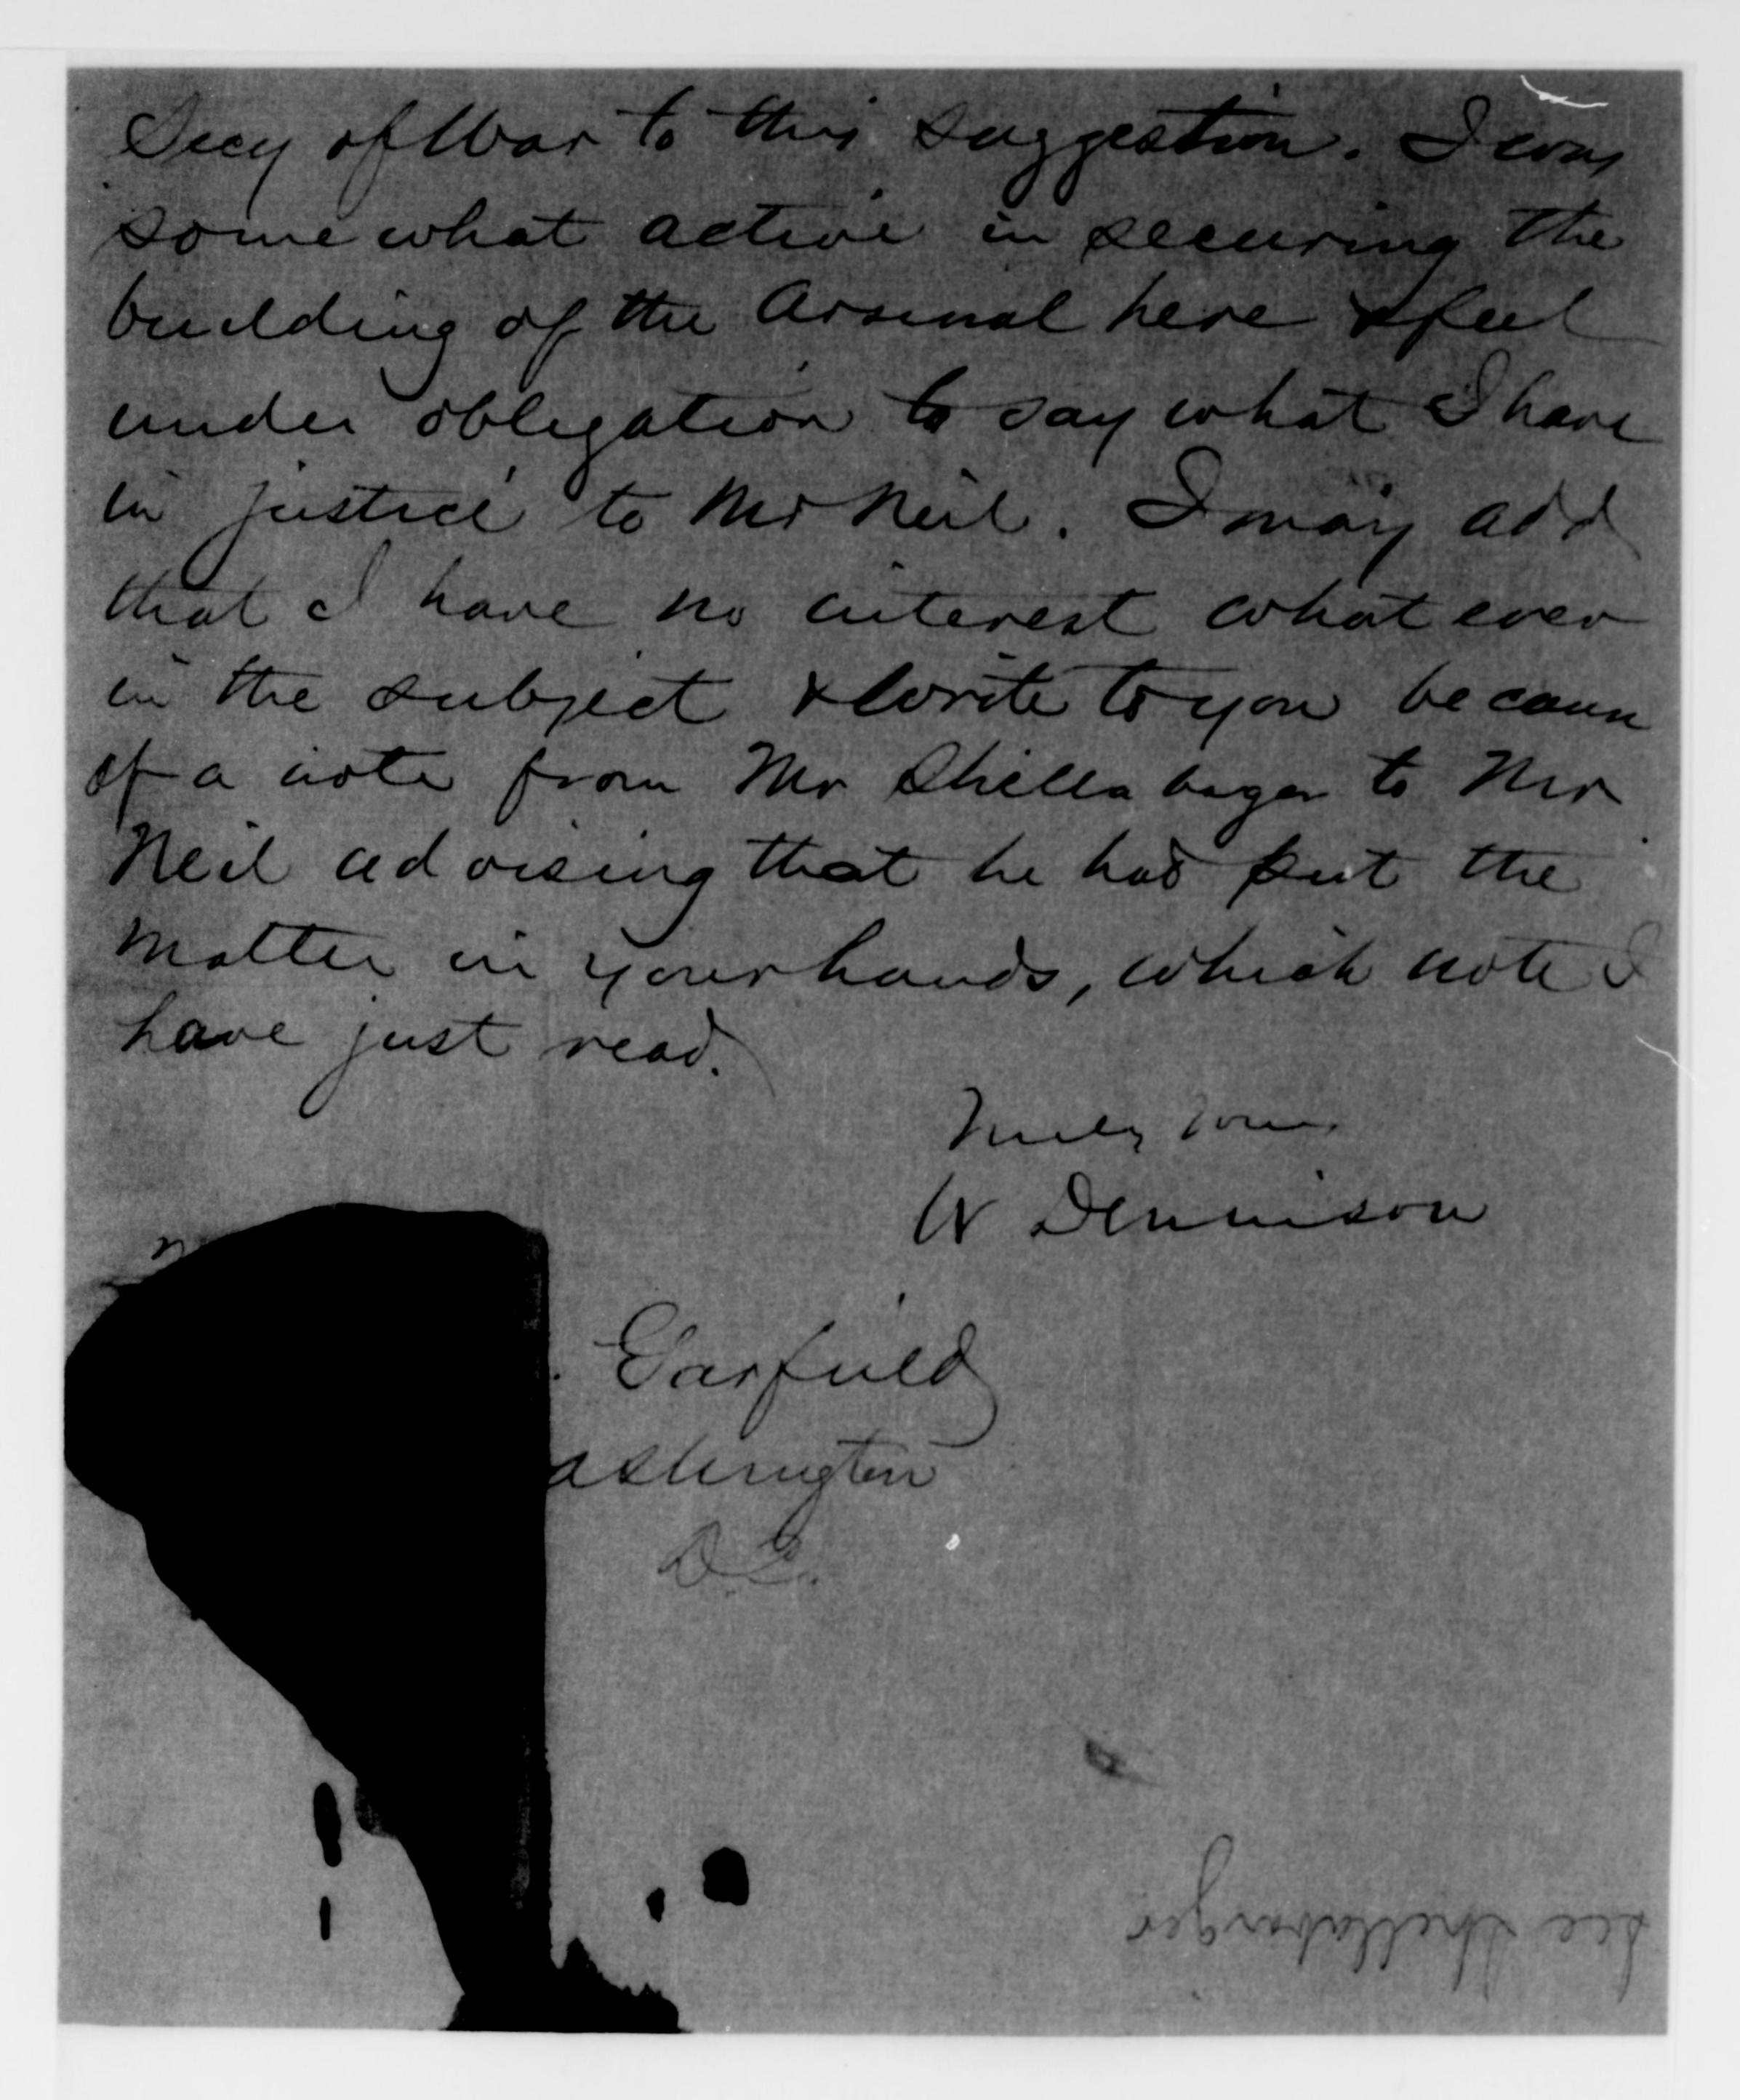 Secy of War to this suggestion. I was
some what active in securing the
building of the Arsenal here & feel
under obligation to say what I have
in justice to Mr Neil. I may add
that I have no interest what ever
in the subject & write to you because
of a note from Mr Shellabager to Mr
Neil advising that he had put the
matter in your hands, which note I
have just read.
Truly Yours
W Dennison
. Garfield
ashington
D.C.
See Shellabarger